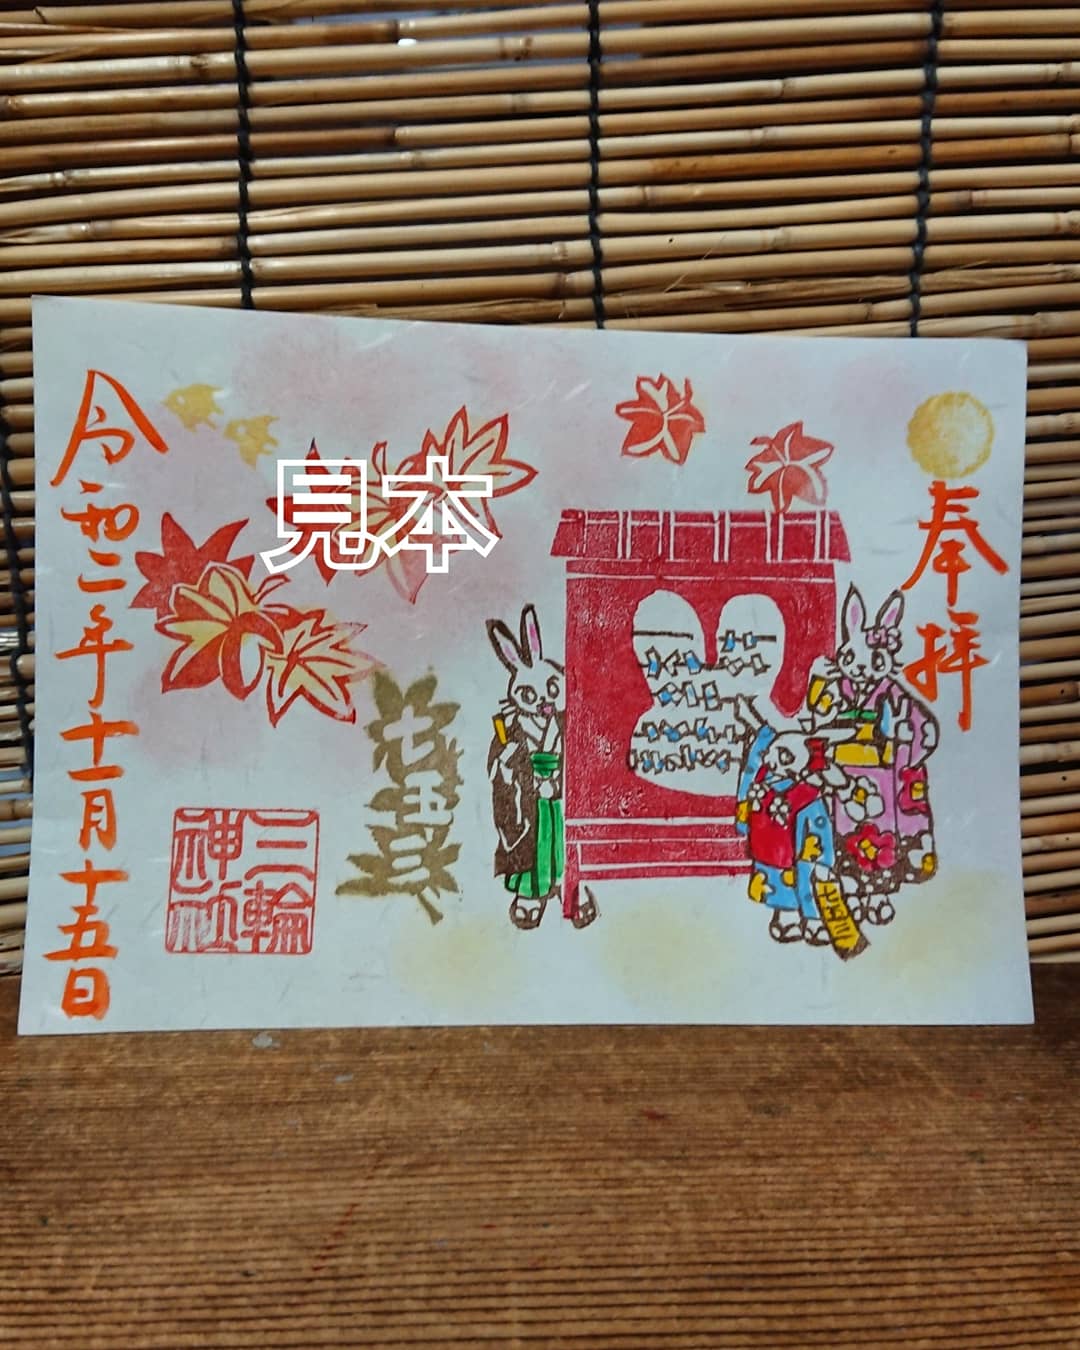 奉拝
七五三
三輪
神社
令和二年十一月十五日
見本